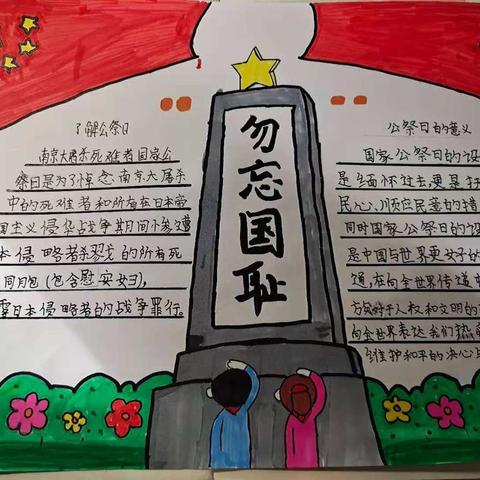 了解公祭日
南京大屠杀死难者国家公
祭日是为了悼念南京大屠杀
中的死难者和所有在日本帝
国主义侵华战争期间惨遭
本侵略者杀戮的所有死
同胞(包含慰安妇),
露日本侵略者的战争罪行。
勿忘国耻
公祭日的意义
国家公祭日的设
是缅怀过去,更是
民心、顺应民意的措
同时国家公祭日的设
是中国与世界更好的
通,在向全世界传递
方对于人权和文明的
向全世界表达我们热
维护和平的决心